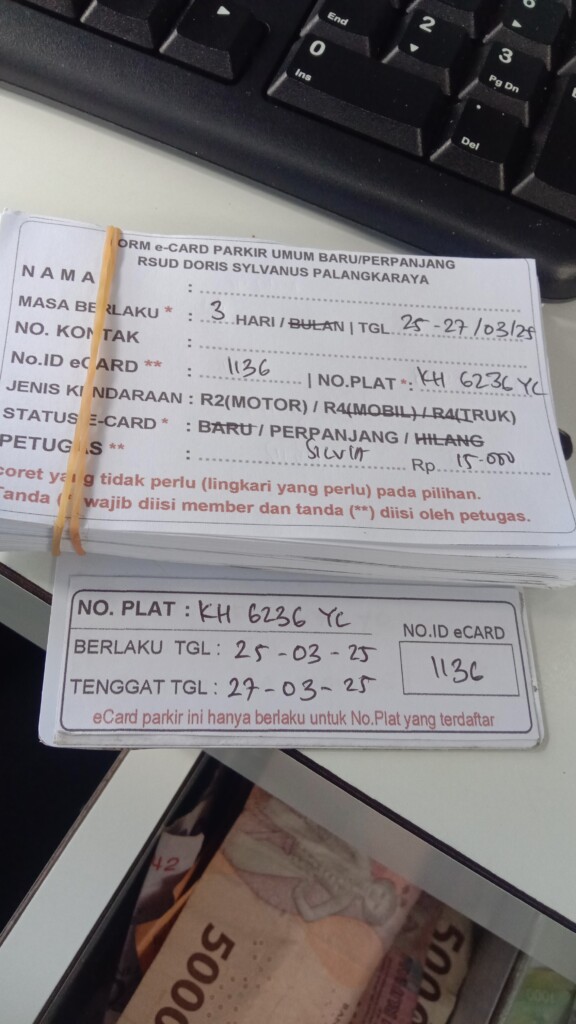 End
2
0
Ins
3
Pg Dn
Del
ORM e-CARD PARKIR UMUM BARU/PERPANJANG
RSUD DORIS SYLVANUS PALANGKARAYA
NAMA :
MASA BERLAKU * : 3 HARI / BULAN | TGL 25-27/03/25
NO. KONTAK :
No.ID eCARD ** : 1136 | NO.PLAT *: KH 6236 YC
JENIS KENDARAAN : R2(MOTOR) / R4(MOBIL) / R4(TRUK)
STATUS E-CARD * : BARU / PERPANJANG / HILANG
PETUGAS ** : SILVIA Rp 15.000
coret yang tidak perlu (lingkari yang perlu) pada pilihan.
Tanda (*) wajib diisi member dan tanda (**) diisi oleh petugas.
NO. PLAT : KH 6236 YC
NO.ID eCARD
BERLAKU TGL : 25-03-25
1136
TENGGAT TGL : 27-03-25
eCard parkir ini hanya berlaku untuk No.Plat yang terdaftar
42
5000
500
1000